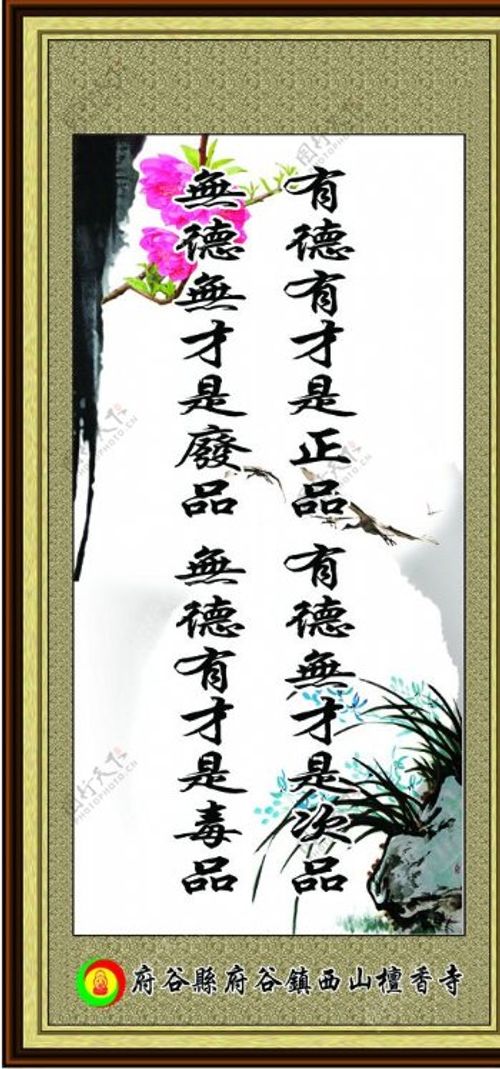 有德有才是正品 有德無才是次品
無德無才是廢品 無德有才是毒品
府谷縣府谷鎮西山檀香寺